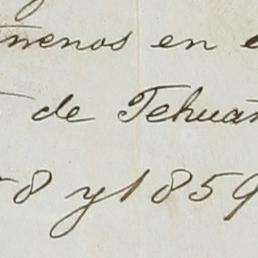 menos en e
de Tehuan
8 y 1859